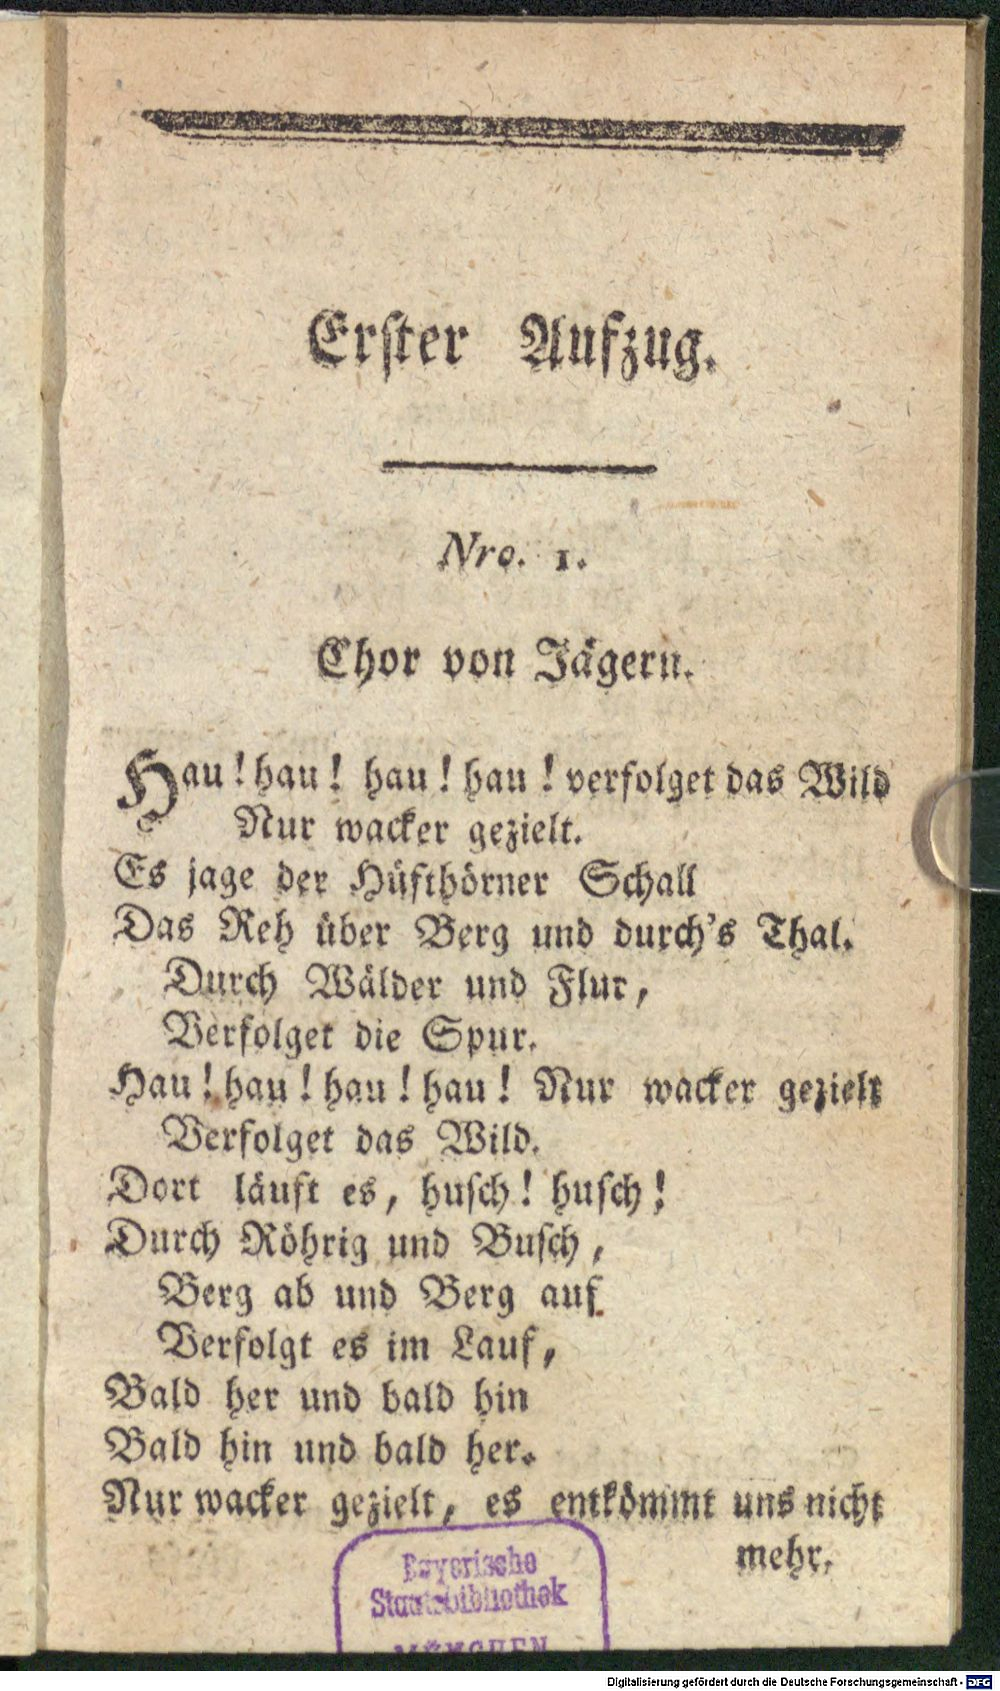 Erster Aufzug.
Nro. 1.
Chor von Jägern.
Hau! hau! hau! hau! verfolget das Wild
Nur wacker gezielt.
Es jage der Hüfthörner Schall
Das Reh über Berg und durch's Thal.
Durch Wälder und Flur,
Verfolget die Spur.
Hau! hau! hau! hau! Nur wacker gezielt
Verfolget das Wild.
Dort läuft es, husch! husch!
Durch Röhrig und Busch,
Berg ab und Berg auf
Verfolgt es im Lauf,
Bald her und bald hin
Bald hin und bald her.
Nur wacker gezielt, es entkömmt uns nicht
mehr.
Bayerische
Staatsbibliothek
MÜNCHEN
Digitalisierung gefördert durch die Deutsche Forschungsgemeinschaft - DFG